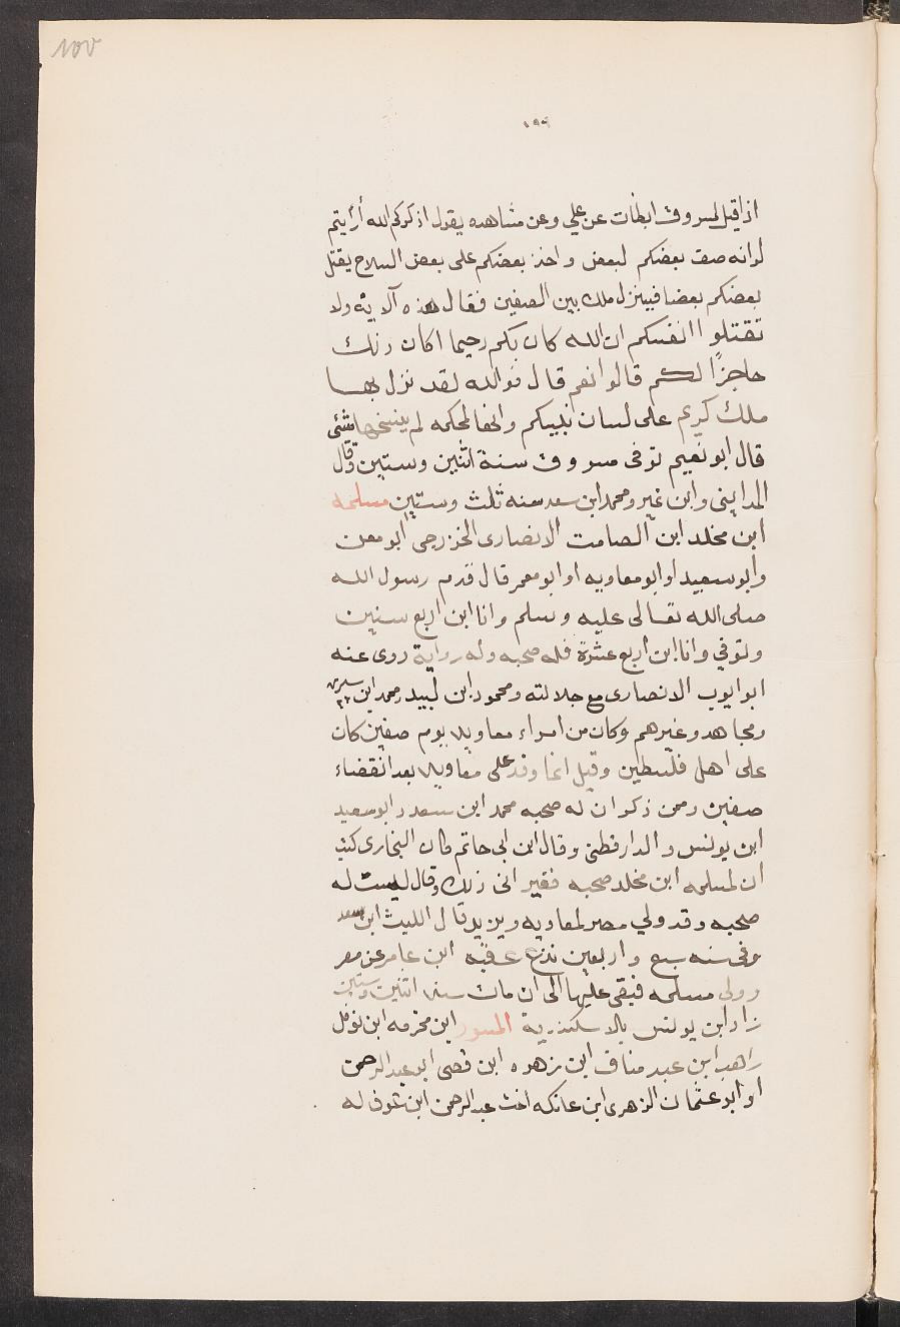 ١٥٧
اذا قيل لمسروق ابطات عن علي وعن مشاهده يقول اذكركم الله أرأيتم
لو انه صف بعضكم لبعض واخذ بعضكم على بعض السلاح يقتل
بعضكم بعضا فينزل ملك بين الصفين فقال هذه الاية ولا
تقتلوا انفسكم ان الله كان بكم رحيما اكان ذلك
حاجزًا لكم قالوا نعم قال فوالله لقد نزل بها
ملك كريم على لسان نبيكم وانها لمحكمه لم ينسخها شئ
قال ابو نعيم توفى مسروق سنة اثنين وستين وقال
المدايني وابن نمير ومحمد ابن سعد سنه ثلث وستين مسلمه
ابن مخلد ابن الصامت الانصارى الخزرجى ابو معن
وابو سعيد او ابو معاويه او ابو معمر قال قدم رسول الله
صلى الله تعالى عليه وسلم وانا ابن اربع سنين
وتوفي وانا ابن اربع عشرة فله صحبه وله رواية روى عنه
ابو ايوب الانصارى مع جلالته ومحمود ابن لبيد ومحمد ابن سيرين
ومجاهد وغيرهم وكان من امراء معاويه يوم صفين كان
على اهل فلسطين وقيل انما وفد على معاويه بعد انقضاء
صفين وممن ذكر ان له صحبه محمد ابن سعد وابو سعيد
ابن يونس والدارقطنى وقال ابن ابى حاتم كان البخارى كتب
ان لمسلمه ابن مخلد صحبه فغير ابى ذلك وقال ليست له
صحبه وقد ولي مصر لمعاويه ويزيد قال الليث ابن سعد
وفى سنه سبع واربعين نزع عقبه ابن عامر عن مصر
وولى مسلمه فبقى عليها الى ان مات سنه اثنين وستين
زاد ابن يونس بالاسكندرية المسور ابن مخرمه ابن نوفل
اهيب ابن عبد مناف ابن زهره ابن قصى ابو عبد الرحمن
او ابو عثمان الزهرى ابن عاتكه اخت عبد الرحمن ابن عوف له